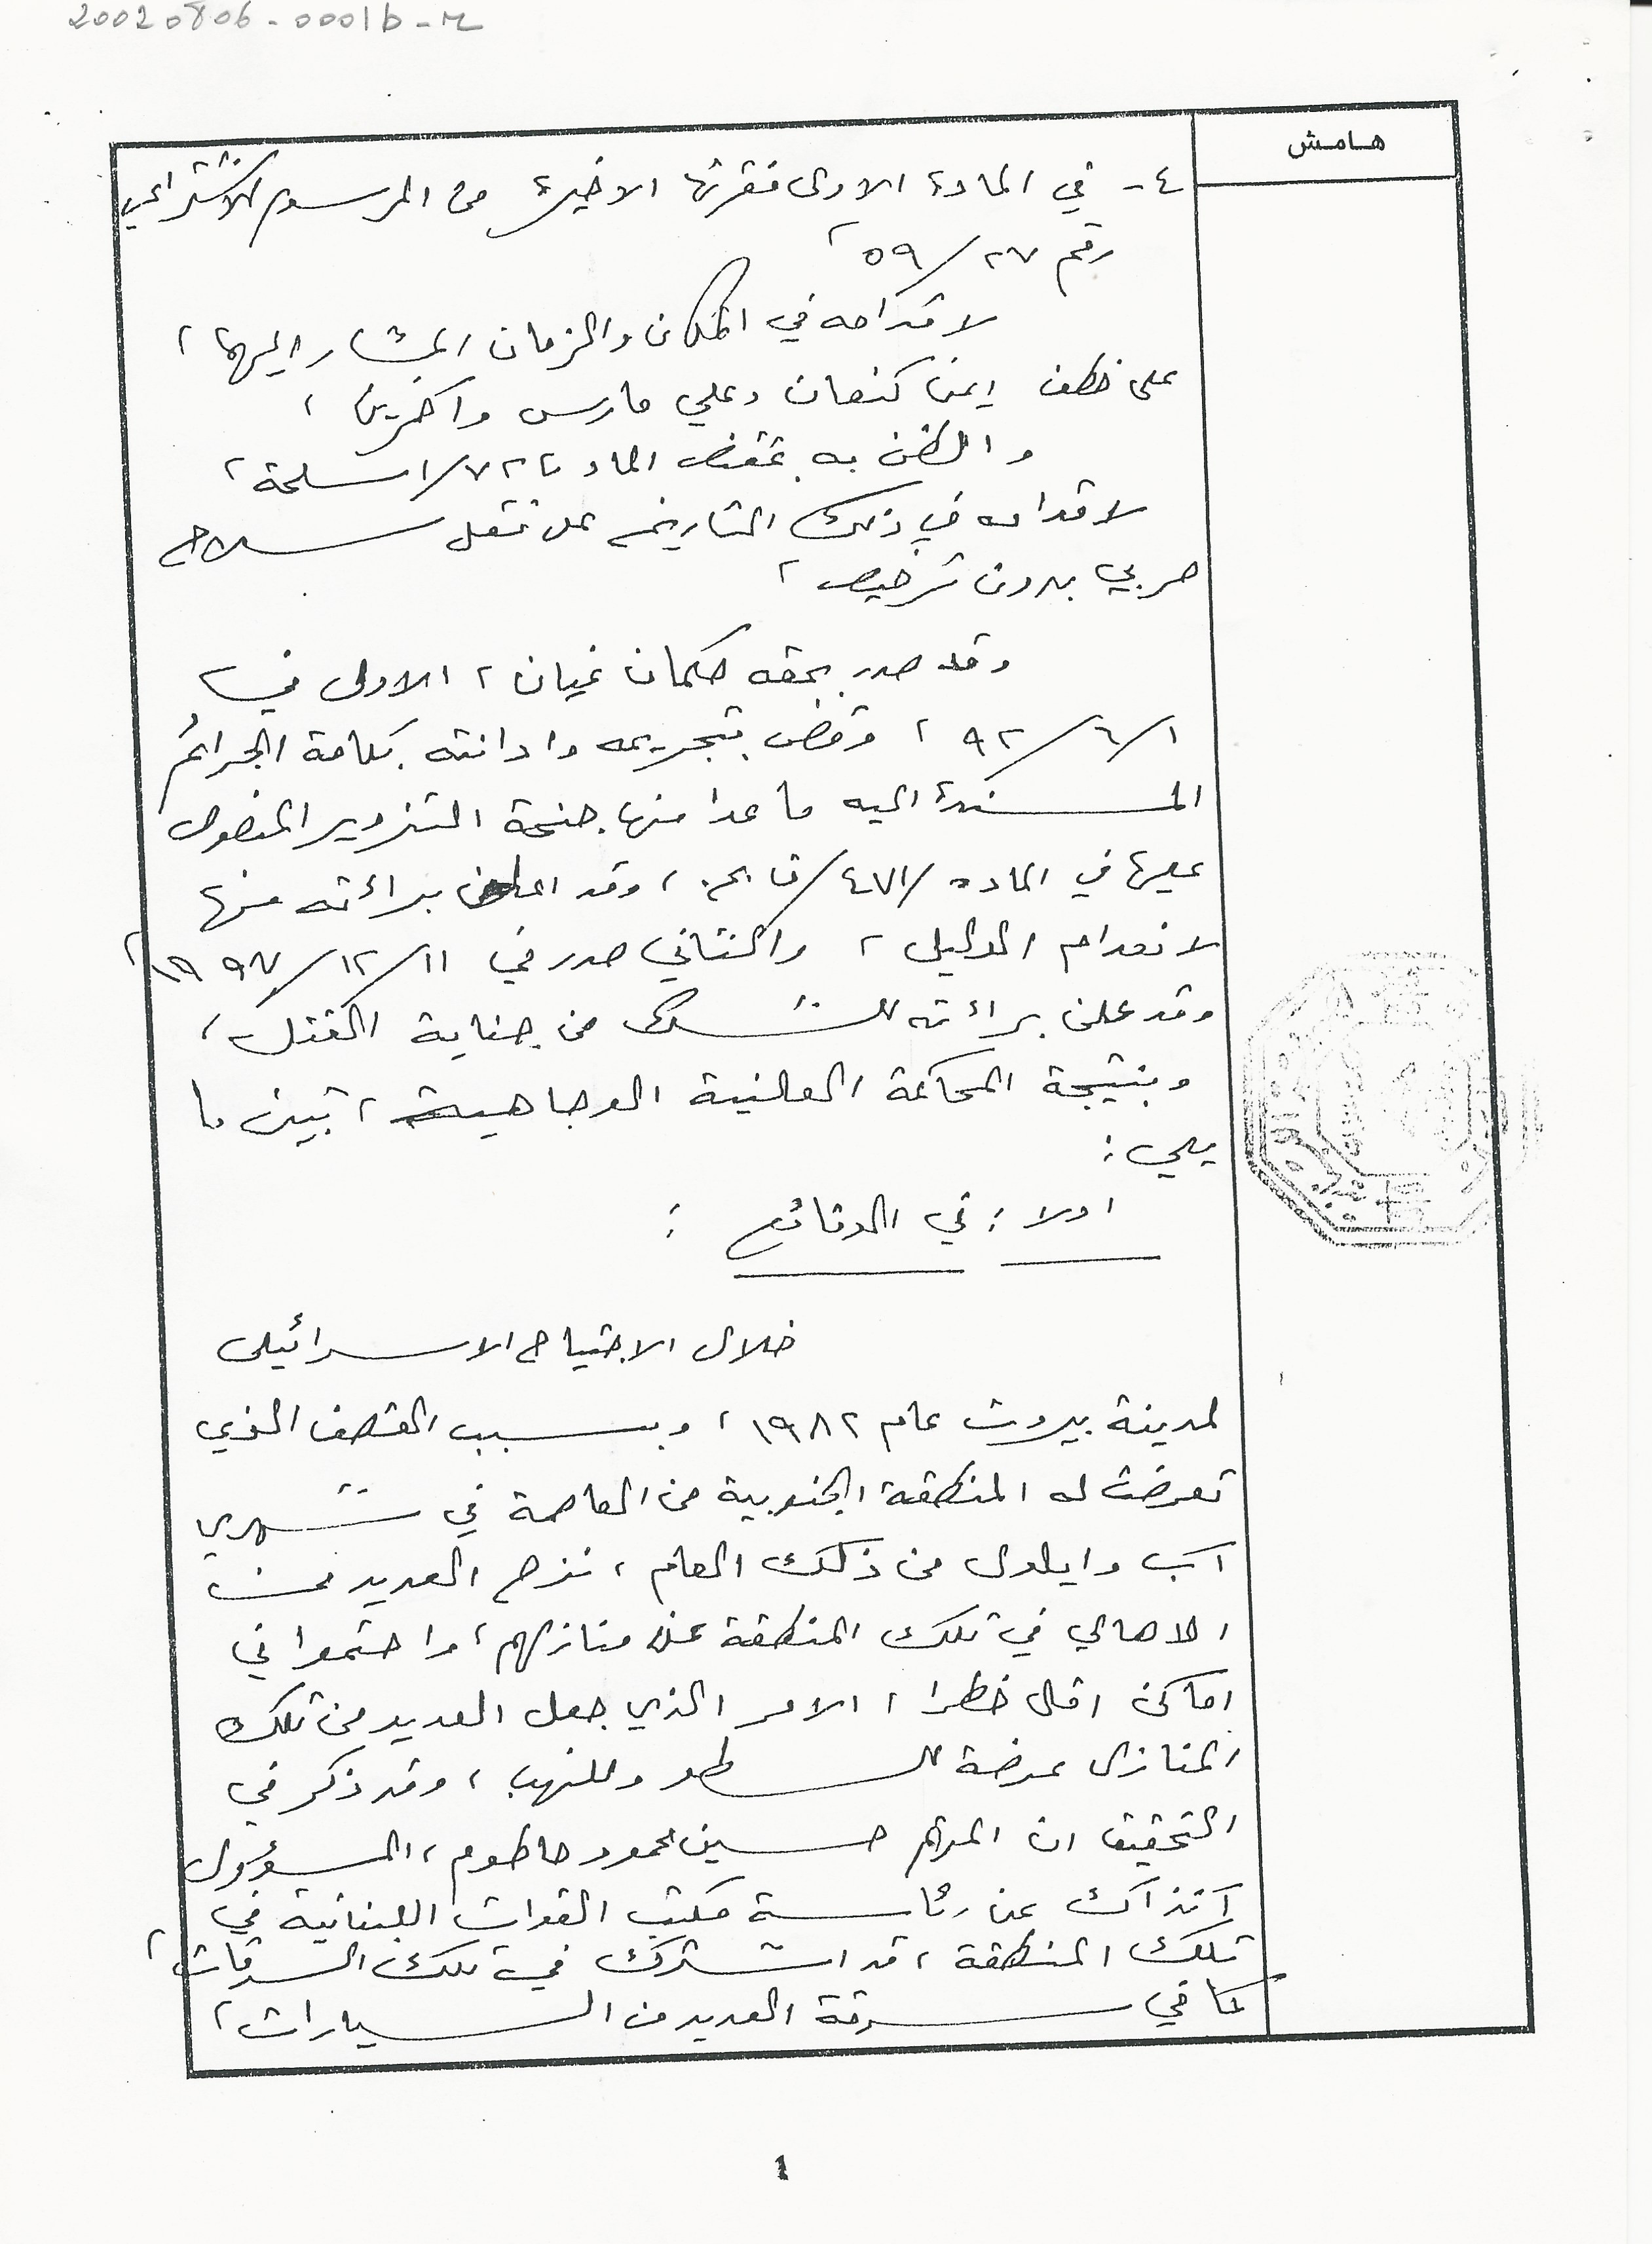 20020806-0001b-r
هامش
٤- في المادة الاولى فقرتها الاخيرة من المرسوم الاشتراعي
رقم ٢٧/٥٩،
لاقدامه في المكان والزمان المشار اليهما،
على خطف ايمن كنعان وعلي فارس واخرين،
والظن به بمقتضى المادة ٧٢/اسلحة،
لاقدامه في ذلك التاريخ على نقل سلاح
حربي بدون ترخيص،
وقد صدر بحقه حكمان غيابيان، الاول في
١/٦/٩٢، وقضى بتجريمه وادانته بكافة الجرائم
المسندة اليه ما عدا منها جنحة التزوير المنصوص
عليها في المادة /٤٧١/، وقد اعلن براءته منها
لانعدام الدليل، والثاني صدر في ١١/١٢/١٩٩٧،
وقد علن براءته للشك من جناية القتل،
وبنتيجة المحاكمة العلنية الوجاهية، تبين ما
يلي:
اولا: في الوقائع:
خلال الاجتياح الاسرائيلي
لمدينة بيروت عام ١٩٨٢، وبسبب القصف الذي
تعرضت له المنطقة الجنوبية من العاصمة في شهري
آب وايلول من ذلك العام، نزح العديد من
الاهالي في تلك المنطقة عن منازلهم، واحتموا في
اماكن اقل خطرا، الامر الذي جعل العديد من تلك
المنازل عرضة للسطو وللنهب، وقد ذكر في
التحقيق ان المتهم حسين محمود حاطوم، المسؤول
آنذاك عن رئاسة مكتب القوات اللبنانية في
تلك المنطقة، قد اشترك في تلك السرقات،
كما في سرقة العديد من السيارات،
1